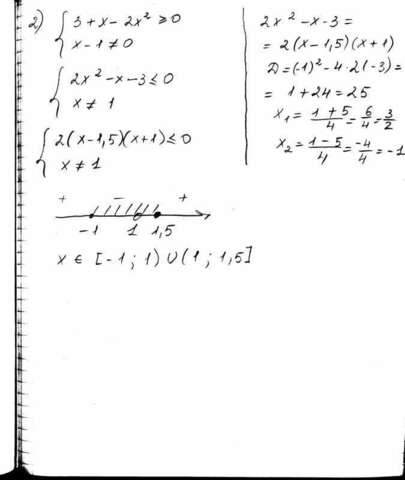 2) { 3 + x - 2x² ≥ 0
x - 1 ≠ 0
{ 2x² - x - 3 ≤ 0
x ≠ 1
{ 2(x - 1,5)(x + 1) ≤ 0
x ≠ 1
+ - +
-1 1 1,5
x ∈ [-1; 1) ∪ (1; 1,5]
2x² - x - 3 =
= 2(x - 1,5)(x + 1)
D = (-1)² - 4·2(-3) =
= 1 + 24 = 25
x₁ = (1 + 5)/4 = 6/4 = 3/2
x₂ = (1 - 5)/4 = -4/4 = -1